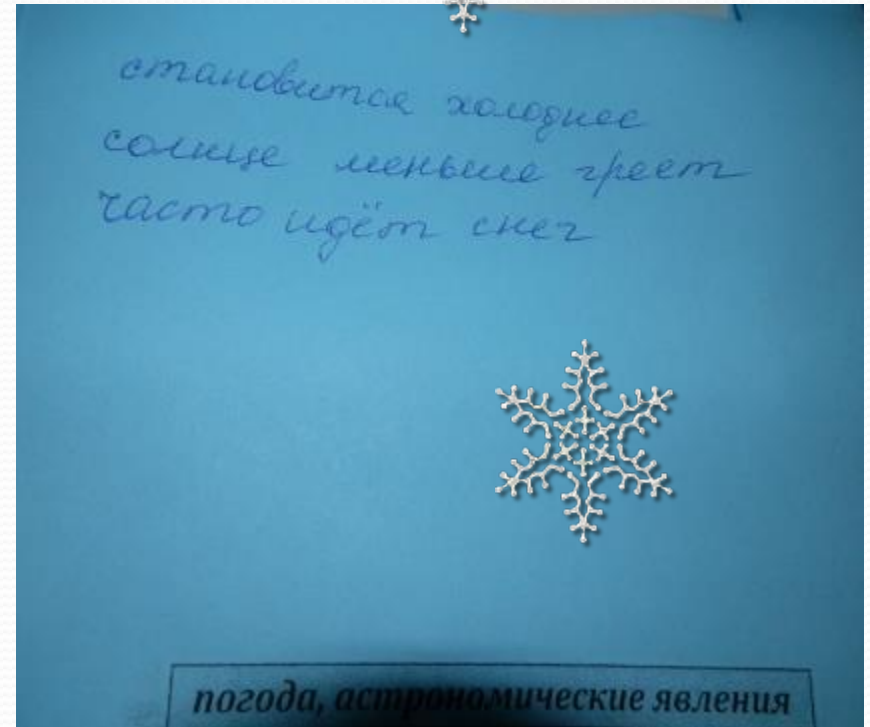 становится холоднее
солнце меньше греет
часто идёт снег
погода, астрономические явления